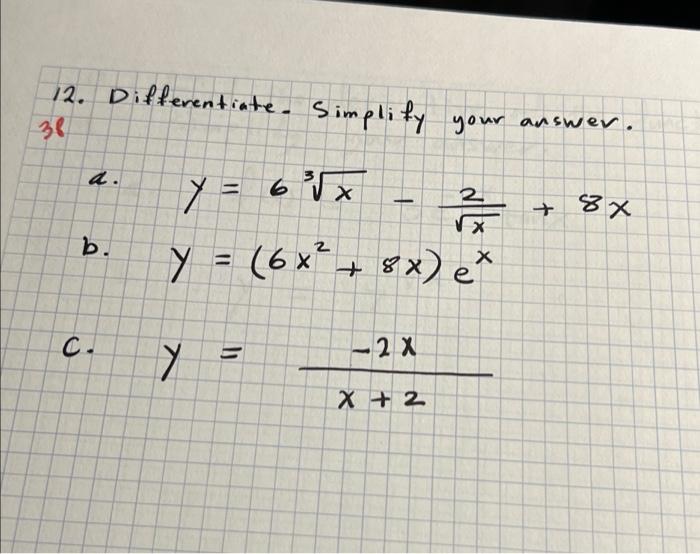 12. Differentiate. Simplify your answer.
38
a. y = 6 ∛x - 2/√x + 8x
b. y = (6x² + 8x) eˣ
c. y = -2x / x + 2